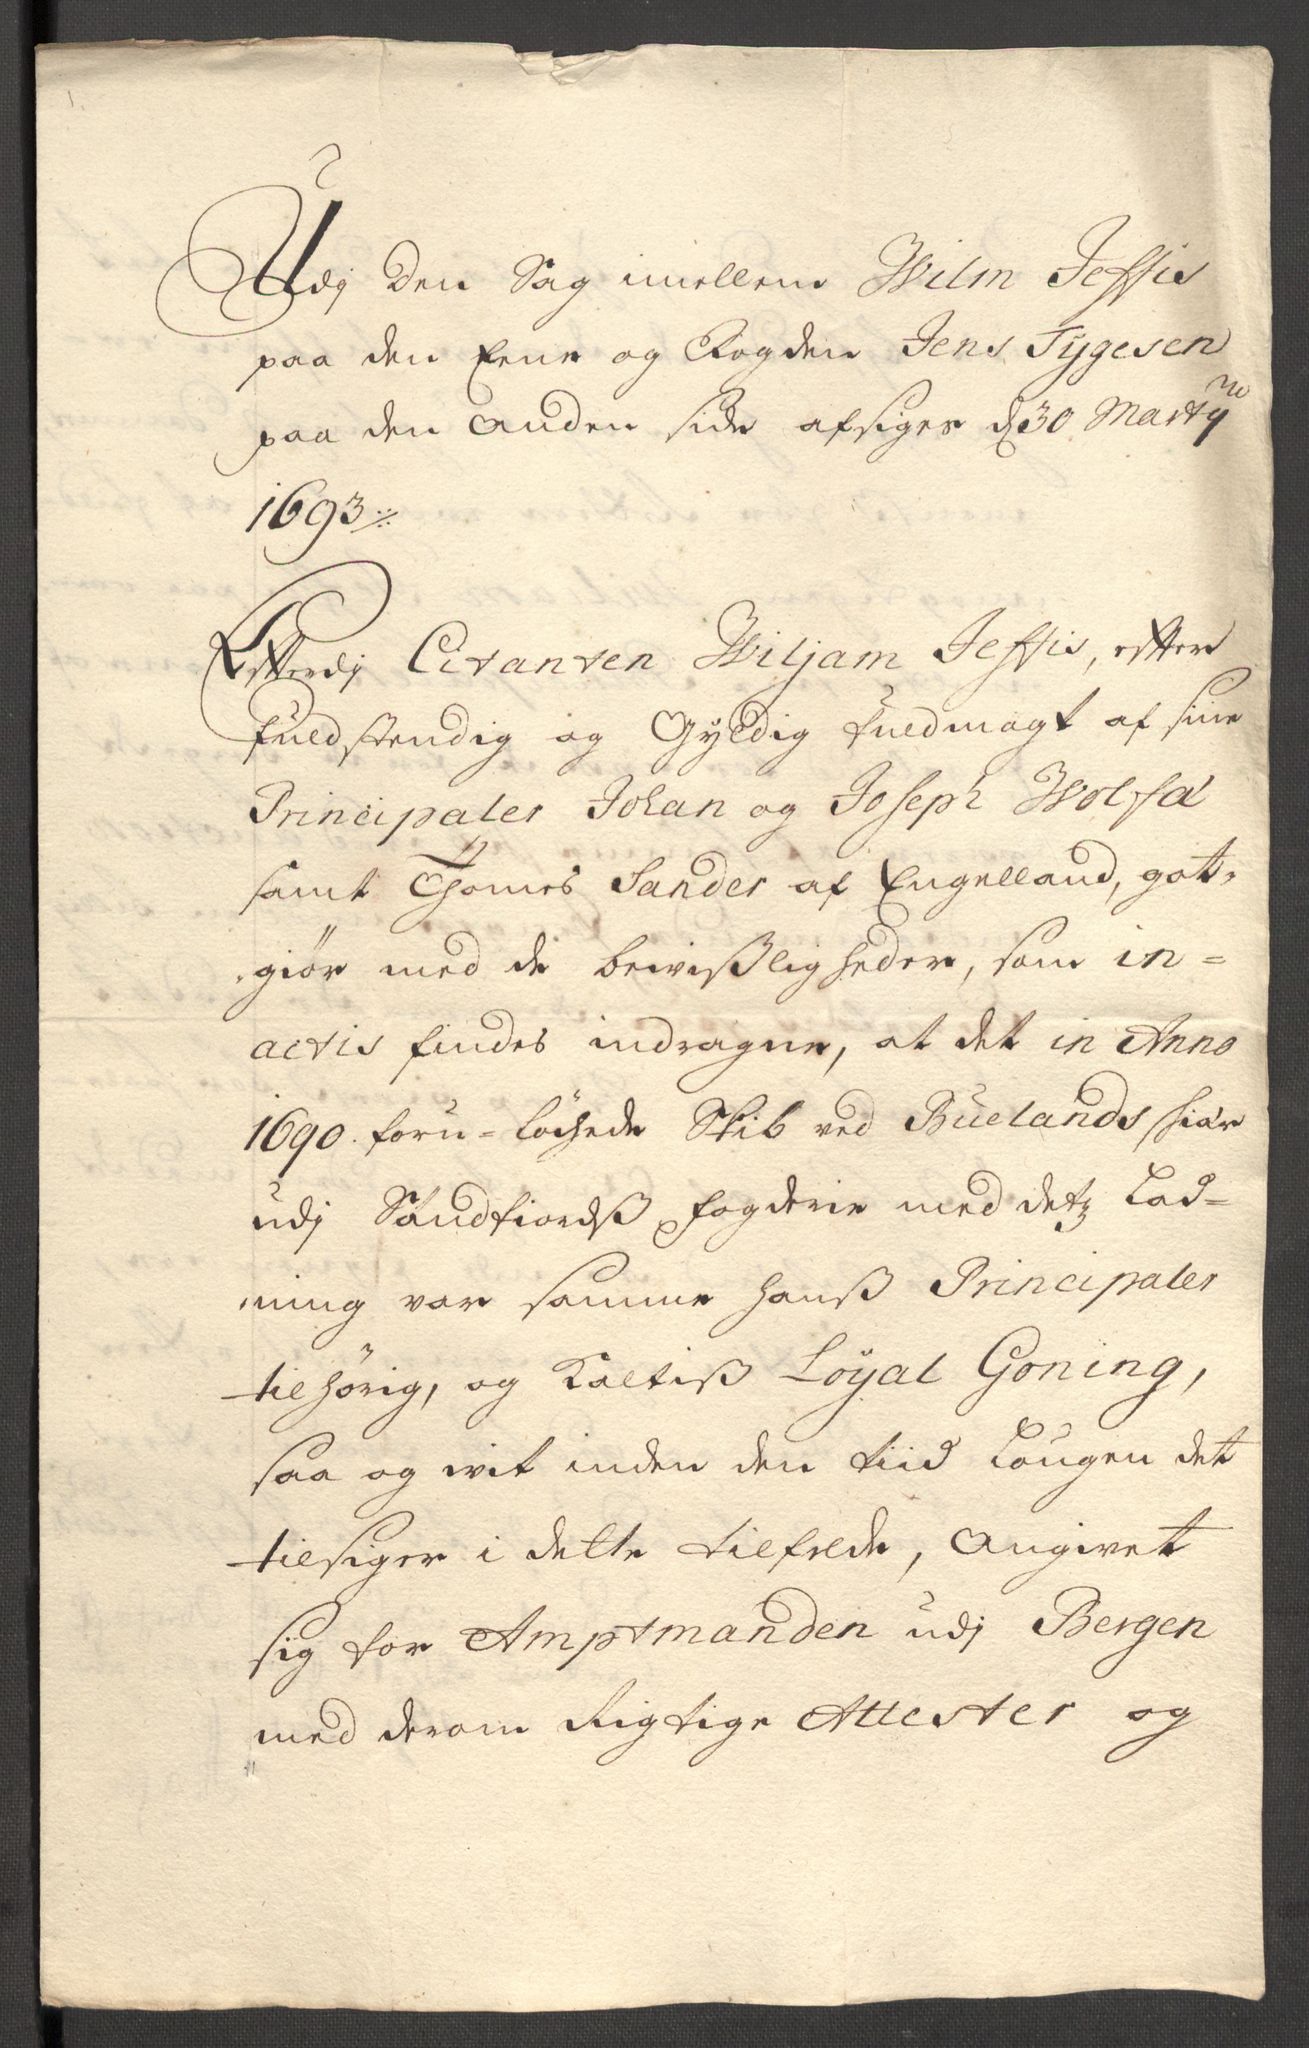 Udj Den Sag imellem Wilm Jeffis
paa den Eene og Fogden Jens Tygesen
paa den Anden side afsiges d 30 Martij
1693 ./.
Efterdj Citanten Wiljam Jeffis, efter
fuldstendig og Gyldig fuldmagt af sine
Principaler Johan og Joseph Wolfa
samt Thomes Sander af Engelland, got-
giör med de bewißligheder, som in=
actis findes indragne, at det in Anno
1690. foru=löchede Skib ved Buelands shiær
udj Sundfiordß fogderie med detz Lad-
ning var samme hanß Principaler
tilhörig, og Kaltiß Löyal Goning,
saa og vit inden den tiid Lougen det
tilsiger i dette tilfelde, Angivet
sig for Amptmanden udj Bergen
med derom Rigtige Attester og